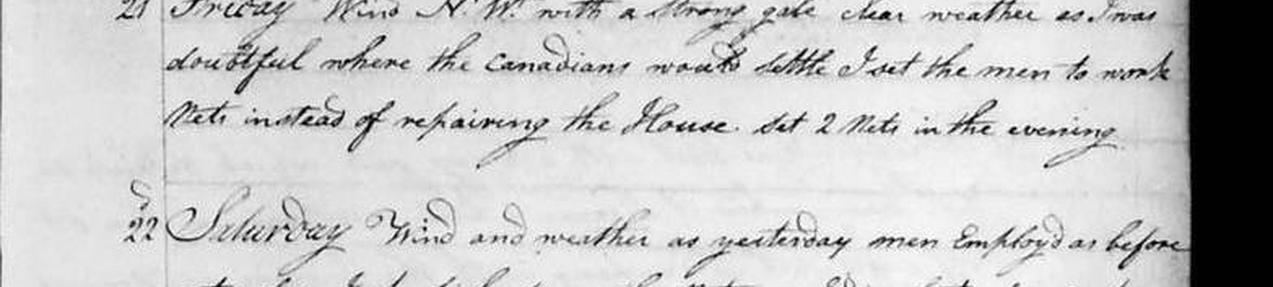 21 Friday Wind N. W. with a strong gale clear weather as I was
doubtful where the Canadians would settle I set the men to work
Nets instead of repairing the House. Set 2 Nets in the evening
22 Saturday Wind and weather as yesterday men Employd as before